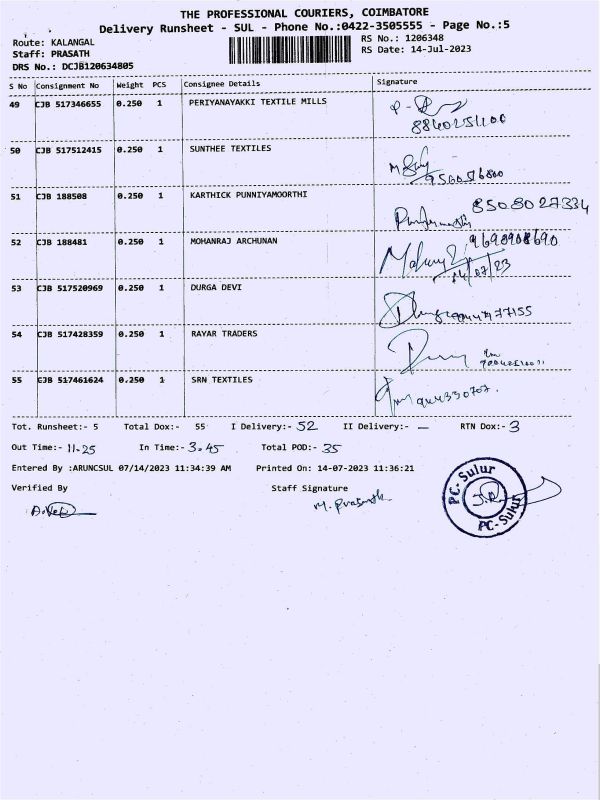 THE PROFESSIONAL COURIERS, COIMBATORE
Delivery Runsheet - SUL - Phone No.:0422-3505555 - Page No.:5
Route: KALANGAL RS No.: 1206348
Staff: PRASATH RS Date: 14-Jul-2023
DRS No.: DCJB120634805
S No Consignment No Weight PCS Consignee Details Signature
49 CJB 517346655 0.250 1 PERIYANAYAKKI TEXTILE MILLS
50 CJB 517512415 0.250 1 SUNTHEE TEXTILES
51 CJB 188508 0.250 1 KARTHICK PUNNIYAMOORTHI 8508027334
52 CJB 188481 0.250 1 MOHANRAJ ARCHUNAN
14/07/23
53 CJB 517520969 0.250 1 DURGA DEVI
54 CJB 517428359 0.250 1 RAYAR TRADERS
55 CJB 517461624 0.250 1 SRN TEXTILES
Tot. Runsheet:- 5 Total Dox:- 55 I Delivery:- 52 II Delivery:- — RTN Dox:- 3
Out Time:- 11.25 In Time:- 3.45 Total POD:- 35
Entered By :ARUNCSUL 07/14/2023 11:34:39 AM Printed On: 14-07-2023 11:36:21
Verified By Staff Signature
M. Prasath
PC-Sulur
PC-Sulur